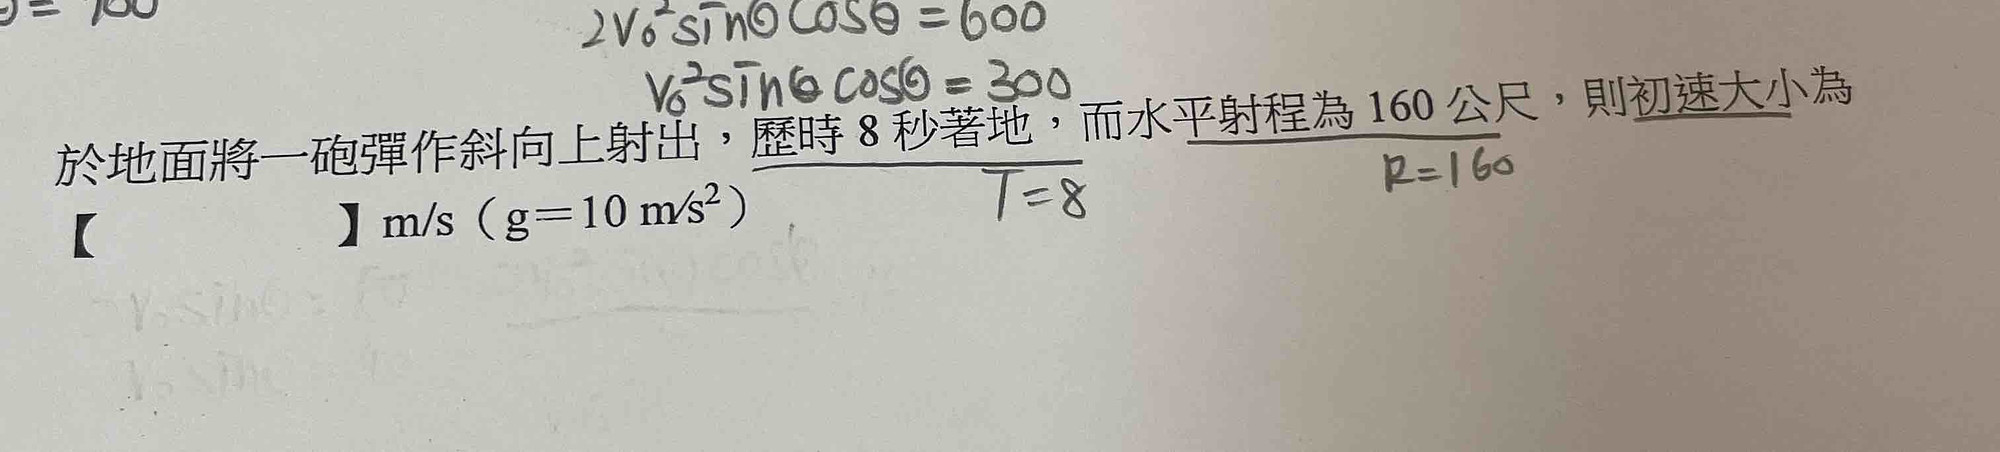 2V₀²sinθcosθ=600
V₀²sinθcosθ=300
於地面將一砲彈作斜向上射出，歷時 8 秒著地，而水平射程為 160 公尺，則初速大小為
T=8
R=160
【 】m/s（g＝10 m/s²）